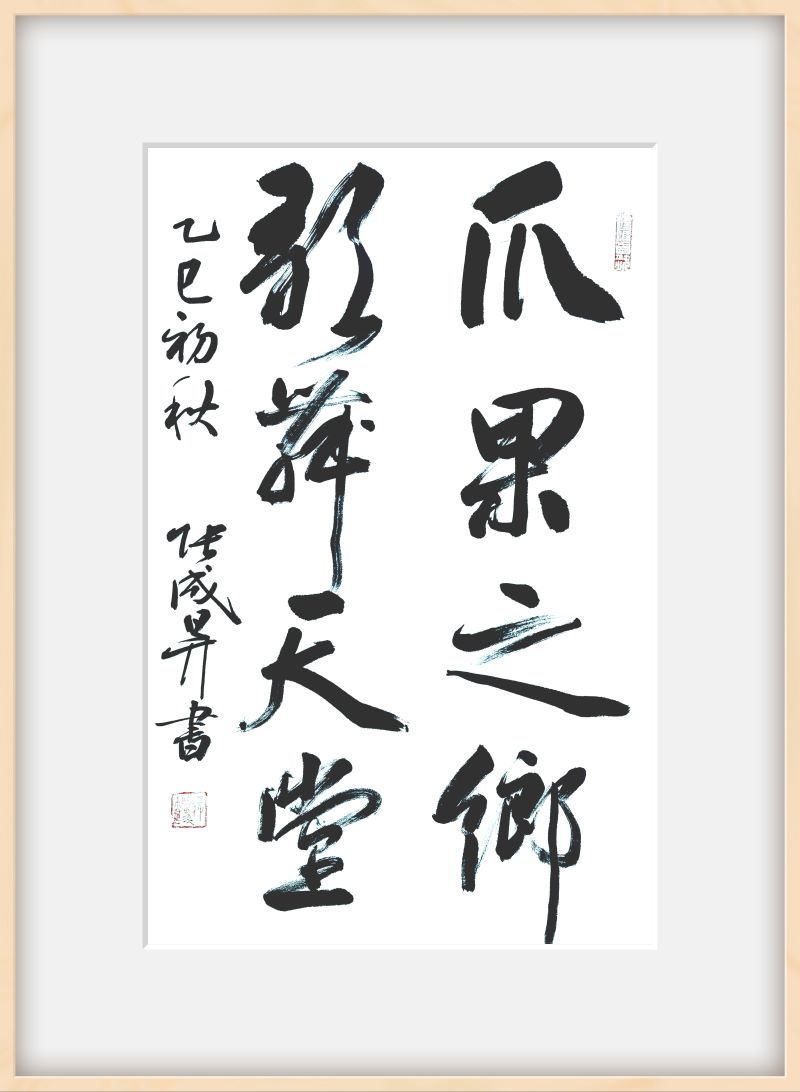 瓜果之鄉
歌舞天堂
乙巳初秋 張成昇書